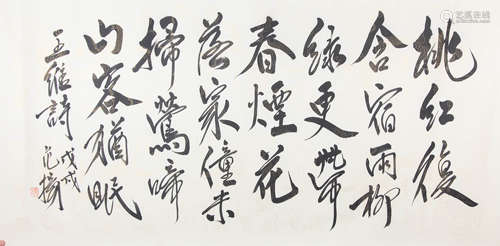 桃红復
含宿雨柳
绿更帶
春煙花
落家僮未
掃鶯啼
山客猶眠
王維詩
戊戌
范揚